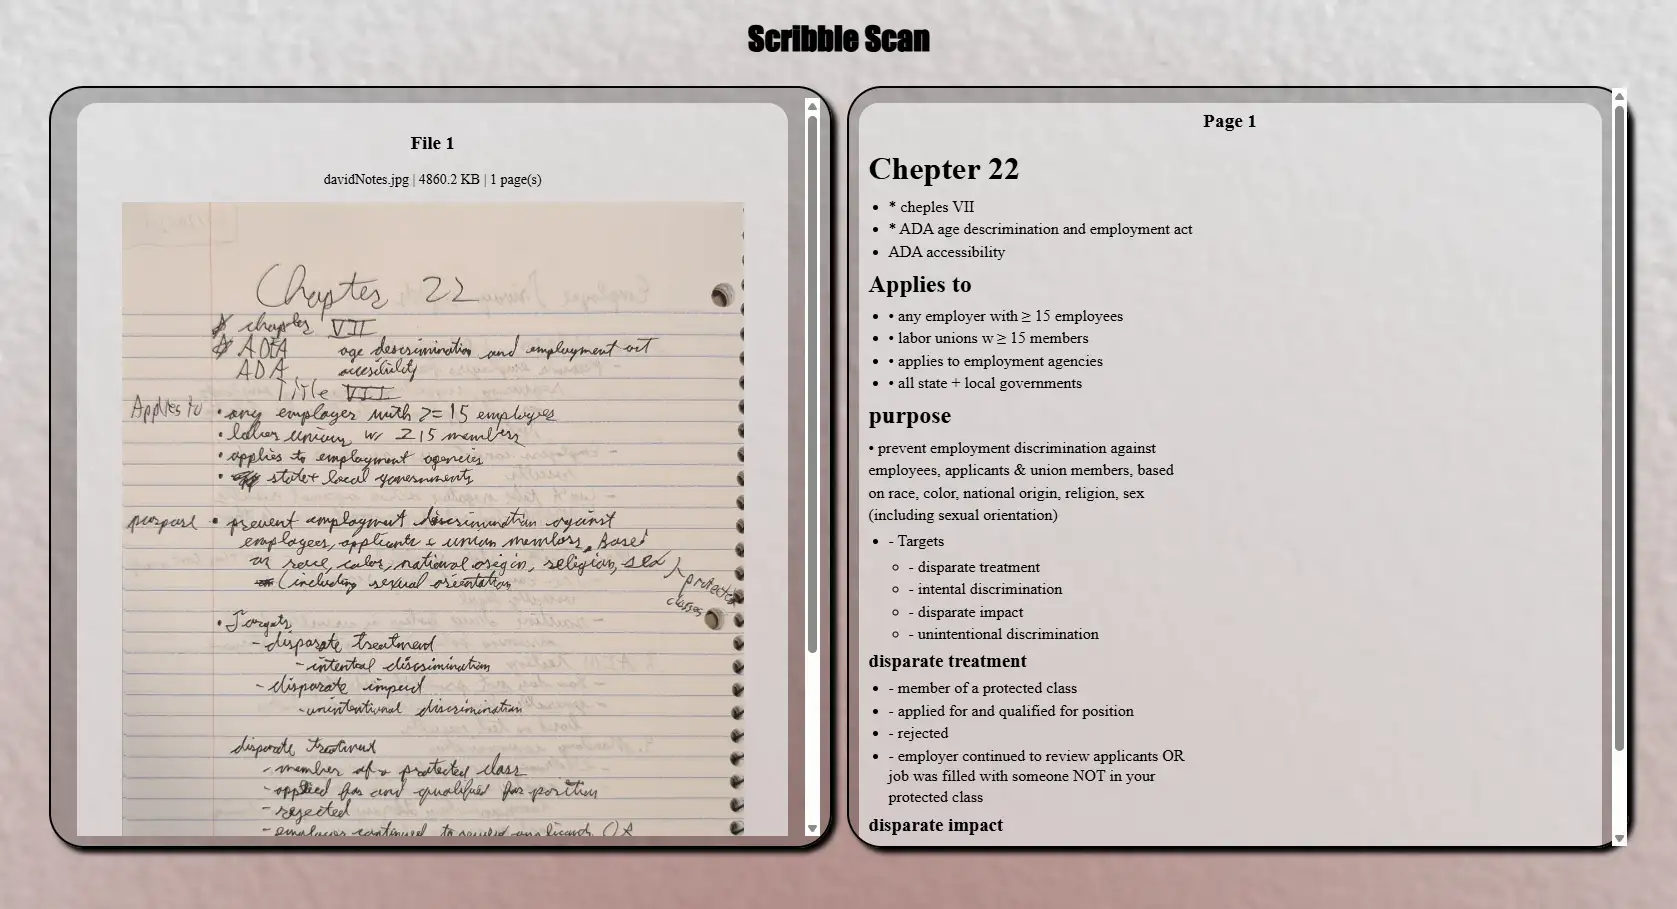 Scribble Scan
File 1
davidNotes.jpg | 4860.2 KB | 1 page(s)
Chapter 22
chapter VII
ADEA age descrimination and employment act
ADA accesibility
Title VII
Applies to • any employer with >= 15 employees
• labor unions w/ ≥ 15 members
• applies to employment agencies
• state + local governments
purpose • prevent employment discrimination against
employees, applicants & union members, Based
on race, color, national origin, religion, sex
(including sexual orientation
protected
classes
• Targets
- disparate treatment
- intental discrimination
- disparate impact
- unintentional discrimination
disparate treatment
- member of a protected class
- applied for and qualified for position
- rejected
- employer continued to review applicants OR
Page 1
Chepter 22
• * cheples VII
• * ADA age descrimination and employment act
• ADA accessibility
Applies to
• • any employer with ≥ 15 employees
• • labor unions w ≥ 15 members
• • applies to employment agencies
• • all state + local governments
purpose
• prevent employment discrimination against
employees, applicants & union members, based
on race, color, national origin, religion, sex
(including sexual orientation)
• - Targets
○ - disparate treatment
○ - intental discrimination
○ - disparate impact
○ - unintentional discrimination
disparate treatment
• - member of a protected class
• - applied for and qualified for position
• - rejected
• - employer continued to review applicants OR
job was filled with someone NOT in your
protected class
disparate impact